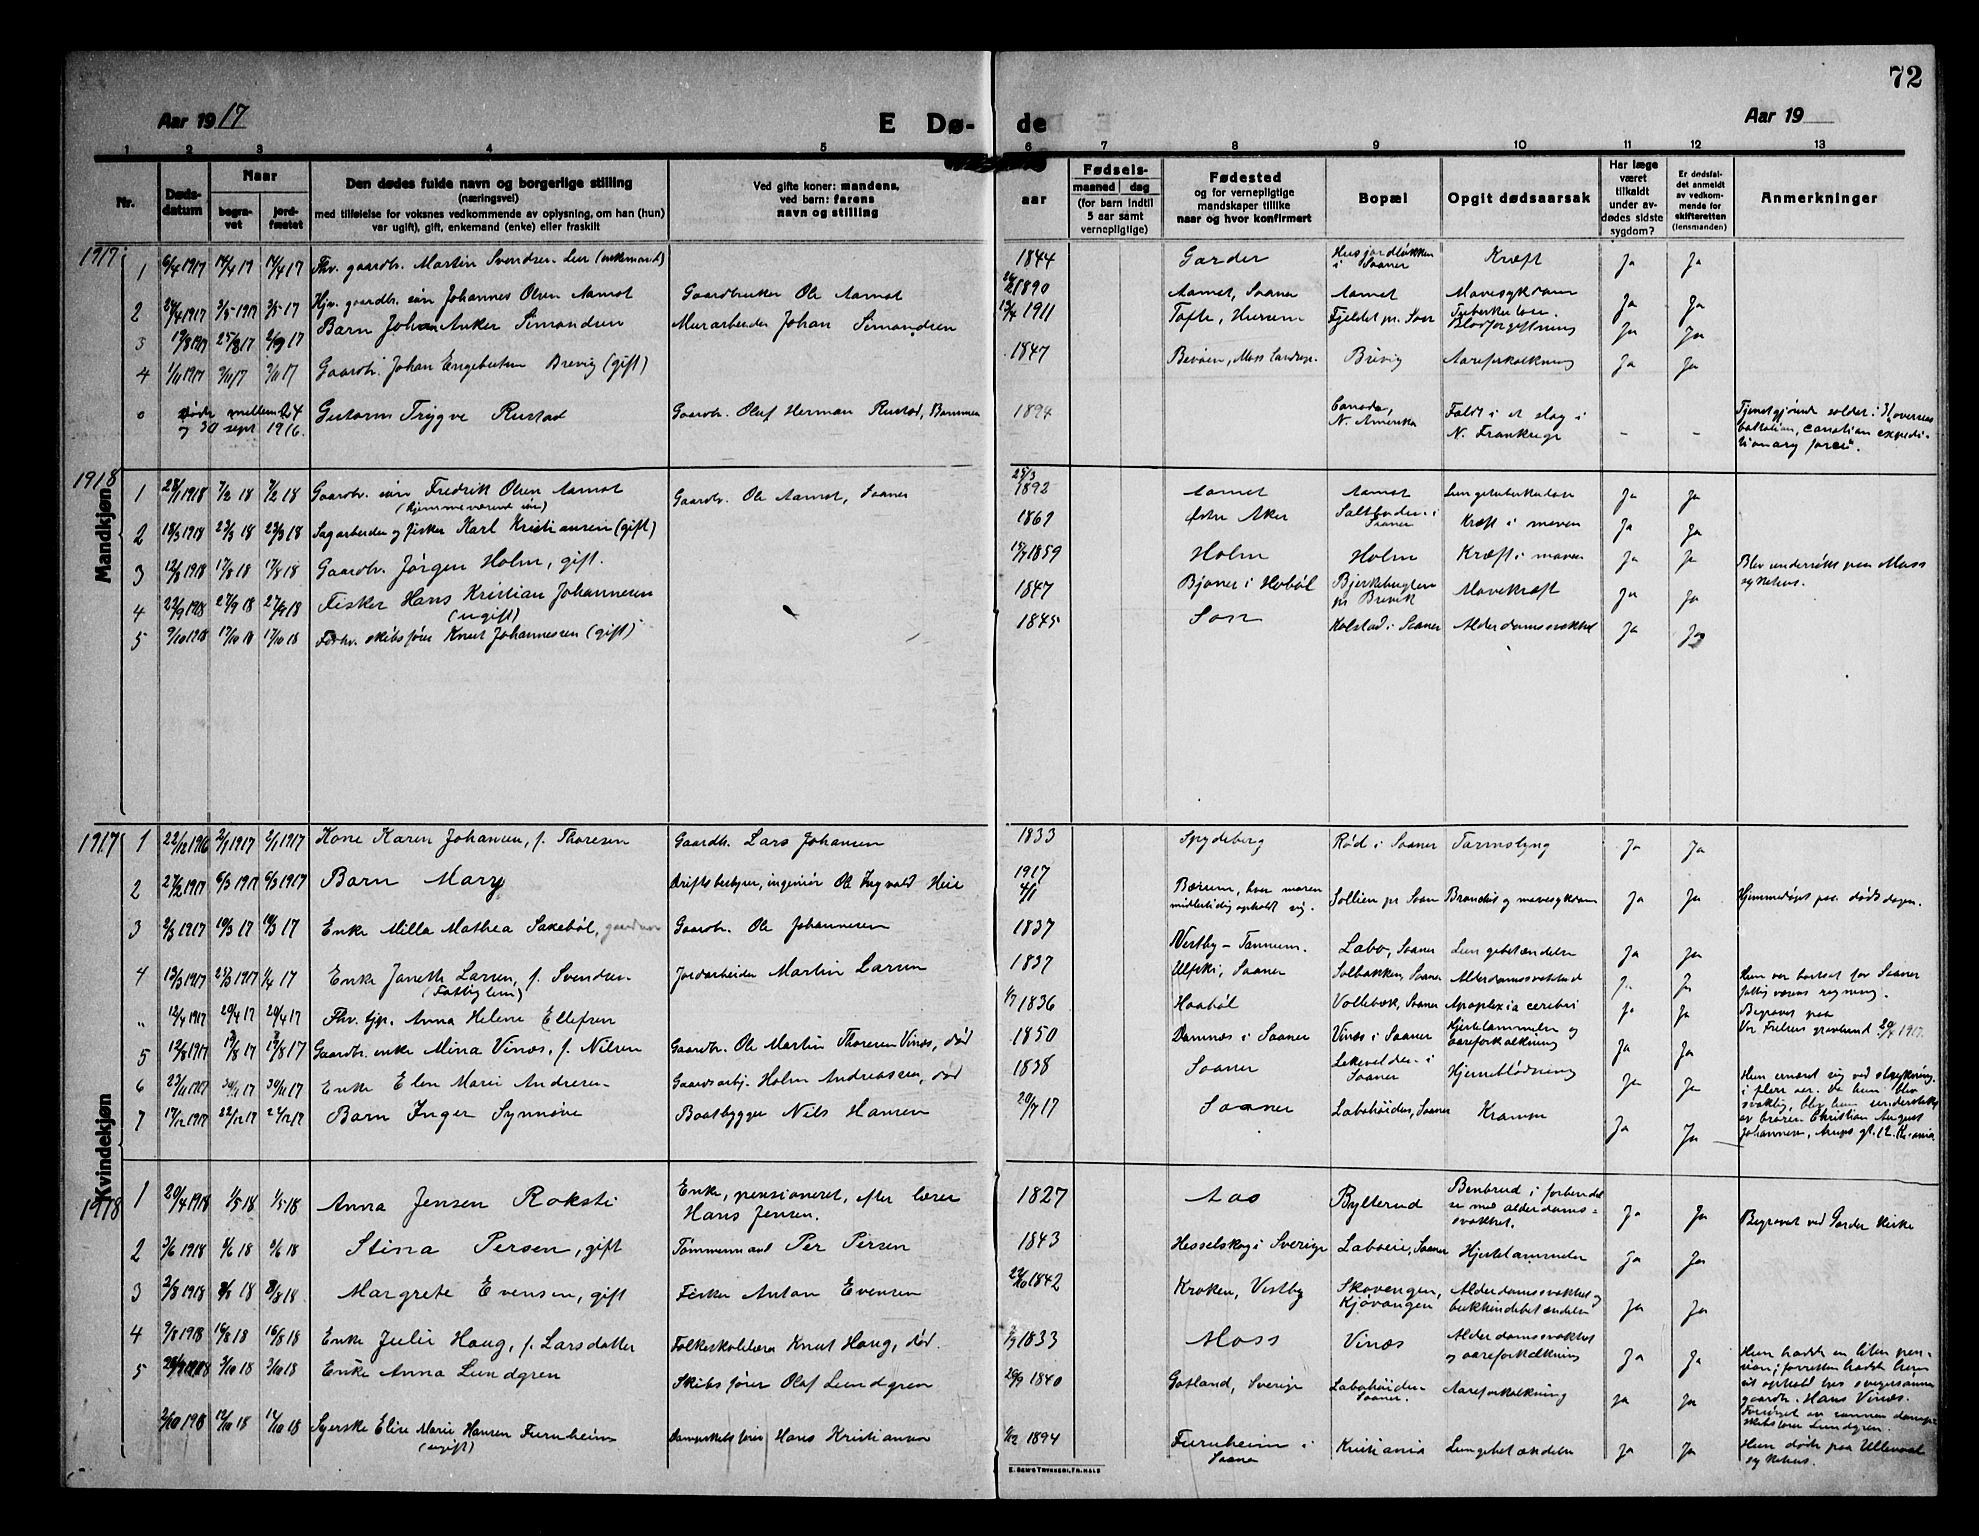 72
Aar 1917
E Dø-
de
Aar 19
1 2 3 4 5 6 7 8 9 10 11 12 13
Nr.
Døds-
datum
Naar
begra-
vet
jord-
fæstet
Den dødes fulde navn og borgerlige stilling
(næringsvei)
med tilføielse for voksnes vedkommende av oplysning, om han (hun)
var ugift), gift, enkemand (enke) eller fraskilt
Ved gifte koner: mandens,
ved barn: farens
navn og stilling
aar
Fødsels-
maaned dag
(for barn indtil
5 aar samt
vernepligtige)
Fødested
og for vernepligtige
mandskaper tillike
naar og hvor konfirmert
Bopæl
Opgit dødsaarsak
Har læge
været
tilkaldt
under av-
dødes sidste
sygdom?
Er dødsfal-
det anmeldt
av vedkom-
mende for
skifteretten
(lensmanden)
Anmerkninger
Mandkjøn
1917
1 6/4 1917 14/4 17 14/4 17 Fhv. gaardbr. Martin Svendsen (enkemand) 1844 Garder Husjordløkken i Saaner Kræft Ja Ja
2 24/4 1917 3/5 1917 3/5 17 Hjv. gaardbr. søn Johannes Olsen Aamot Gaardbruker Ole Aamot 1890 Aamot, Saaner Aamot Mavesykdom Tuberkulose Ja Ja
3 25/8 17 2/9 17 Barn Johan Anker Simondsen Murarbeider Johan Simondsen 1911 Tofte, Hurum Fjeldet pr. Son Blodforgiftning Ja Ja
4 1/11 1917 9/11 17 9/11 17 Gaardbr. Johan Engebretsen Brevig (gift) 1847 Bevøen, Moss landsogn Brevig Aareforkalkning Ja Ja
0 døde mellem 24
og 30 sept 1916. Gustorm Trygve Rustad Gaardbr. Oluf Herman Rustad, 1894 Canada,
N. Amerika Faldt i et slag i
N. Frankrige - - Tjenestgjørende soldat i overseas
battalion, canadian expedi-
tionary force".
1918
1 28/1 1918 7/2 18 7/2 18 Gaardbr. søn Fredrik Olsen Aamot
(hjemmeværende søn) Gaardbr. Ole Aamot, Saaner 25/3 1892 Aamot Aamot Lungetuberkulose Ja Ja
2 18/3 1918 23/3 18 23/3 18 Sagarbeider og fisker Karl Kristiansen (gift) 1869 Østre Aker Saltboden i
Saaner Kræft i maven Ja Ja
3 12/8 1918 17/8 18 17/8 18 Gaardbr. Jørgen Holm, gift. 1859 Holm Holm Kræft i maven Ja Ja Blev undersøkt paa Moss
sykehus.
4 22/9 1918 27/9 18 27/9 18 Fisker Hans Kristian Johannesen
(ugift) 1847 Bjøner i Hobøl Bjerkebugten
pr Brevik Mavekræft Ja Ja
5 9/10 1918 17/10 18 17/10 18 Forhv. skibsfører Knut Johannessen (gift) 1845 Son Kolstad i Saaner Alderdomssvakhet Ja Ja
Kvindekjøn
1917
1 22/12 1916 2/1 1917 2/1 1917 Kone Karen Johansen, f. Thoresen Gaardbr. Lars Johansen 1833 Spydeberg Rød i Saaner Tarmslyng Ja Ja
2 27/2 1917 6/3 1917 6/3 1917 Barn Mary Driftsbestyrer, ingeniør Ole Ingvald Heie 1917 4/1 Bærum, hvor moren
midlertidig opholdt sig. Sollien pr Saaner Bronchit og mavesykdom Ja Ja Hjemmedøpt paa dødsdagen.
3 2/3 1917 10/3 17 10/3 17 Enke Milla Mathea Sakebøl, Gaardbr. Ole Johannesen 1837 Vestby - Tannum. Labo, Saaner Lungebetændelse Ja Ja
4 13/3 1917 25/3 1917 1/4 17 Enke Janette Larsen, f. Svendsen
(Fattiglem) Jordarbeider Martin Larsen 1837 Ulfski, Saaner Solbakken, Saaner Alderdomssvakhed Ja Ja Hun var bortsat for Saaner
fattigvæsens regning.
" 12/4 1917 20/4 17 20/4 17 Fhv. tjp. Anna Helene Ellefsen 1/7 1836 Haabøl Vollebæk, Saaner Apoplexia cerebri Ja Ja Begravet paa
Vor Frelsers gravlund 20/4 1917.
5 12/8 1917 19/8 17 19/8 17 Gaardbr. enke Mina Vinæs, f. Nilsen Gaardbr. Ole Martin Thoresen Vinæs, død 1850 Damnæs i Saaner Vinæs i Saaner Hjertelammelse og
aareforkalkning Ja Ja
6 23/11 1917 30/11 17 30/11 17 Enke Elen Marie Andresen Gaardsarbj. Holm Andreassen, død 1838 Saaner Lekevolden i
Saaner Hjerneblødning Ja Ja Hun ernæret sig ved strykning
i flere aar. Da hun blev
svaklig, blev hun understøttet
av broren Christian August
Johannesen, Arups gt. 12. Kr.ania
7 17/12 1917 22/12 17 22/12 17 Barn Inger Synnøve Baatbygger Nils Hansen 20/7 17 Saaner Labohøiden, Saaner Krampe Ja Ja
1918
1 20/4 1918 1/5 18 1/5 18 Anna Jensen Roksti Enke, pensioneret, efter lærer
Hans Jensen. 1827 Aas Bylterud Benbrud i forbindel-
se med alderdoms-
svakhet. Ja Ja Begravet ved Garder kirke
2 3/6 1918 9/6 18 9/6 18 Stina Persen, gift Tømmermand Per Persen 1843 Hesselskog i Sverige Laboeie, Saaner Hjertelammelse Ja Ja
3 2/8 1918 8/8 18 8/8 18 Margrete Evensen, gift Fisker Anton Evensen 22/10 1842 Kroken, Vestby Skovengen,
Kjøvangen Alderdomssvakhet og
brekkindebetændelse Ja Ja
4 9/8 1918 16/8 18 16/8 18 Enke Julie Haug, f. Larsdatter Folkeskolelærer Knut Haug, død. 1833 Moss Vinæs Alderdomssvakhet
og aareforkalkning Ja Ja Hun hadde en liten pen-
sion; forresten hadde hun
sit ophold hos svigersønnen
gaardbr. Hans Vinæs.
5 1918 3/10 18 3/10 18 Enke Anna Lundgren Skibsfører Olaf Lundgren 1840 Gotland, Sverige Labohøiden
Saaner. Aareforkalkning Ja Ja Forsørget av sønnen damp-
skibsfører Lundgren.
2/10 1918 12/10 18 12/10 18 Syerske Elise Marie Hansen Furuheim
(ugift) Dampskibsfører Hans Kristiansen 1894 Furuheim i
Saaner Kristiania Lungebetændelse Ja Ja Hun døde paa Ullevaal
sykehus.
E. SEM'S TRYKKERI, FR.HALD